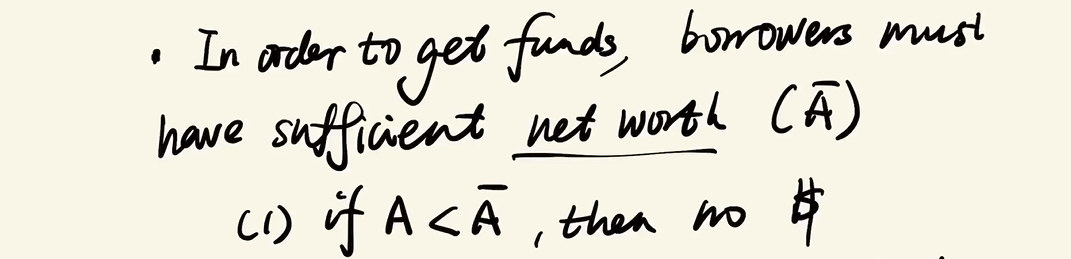 • In order to get funds, borrowers must
have sufficient net worth (Ā)
(1) if A < Ā, then no $